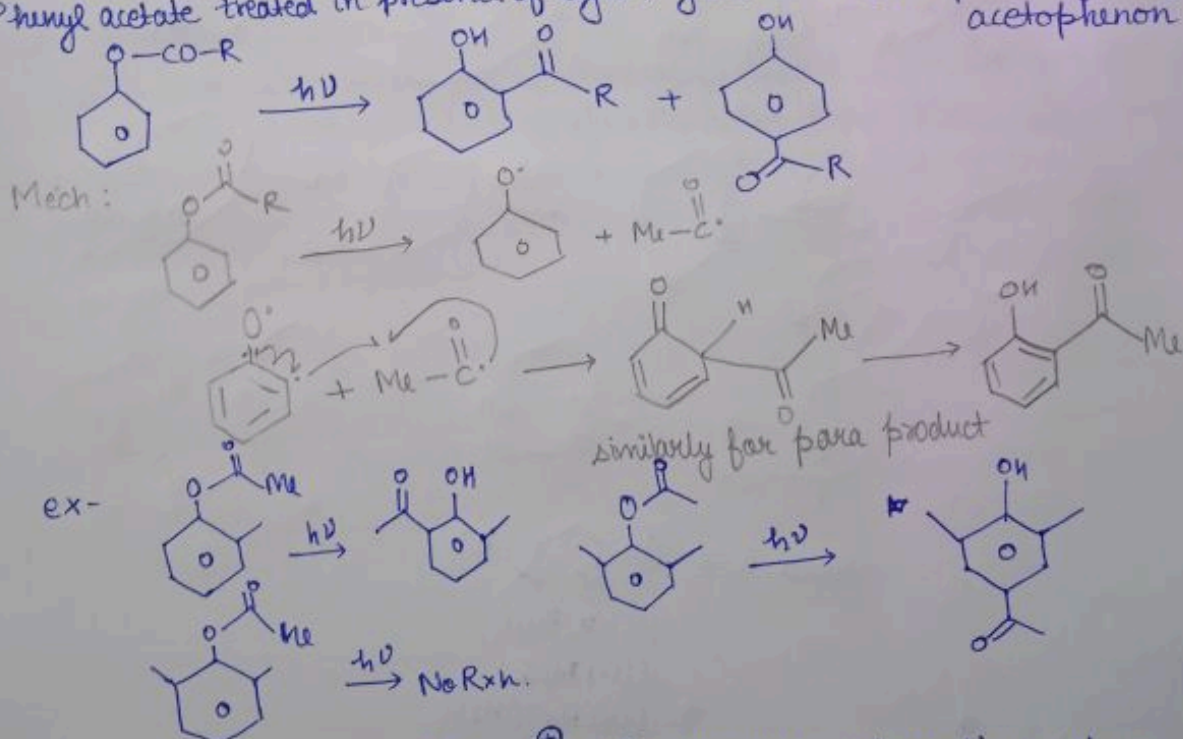 Phenyl acetate treated in
acetophenon
O-CO-R
hν
OH
O
R
+
OH
O
R
Mech:
O
O
R
hν
O·
+ Me-C·
O
O·
+ Me-C·
O
O
H
Me
O
OH
O
Me
similarly for para product
ex-
O
O
Me
hν
O
OH
O
O
hν
OH
O
O
O
Me
hν
No Rxn.